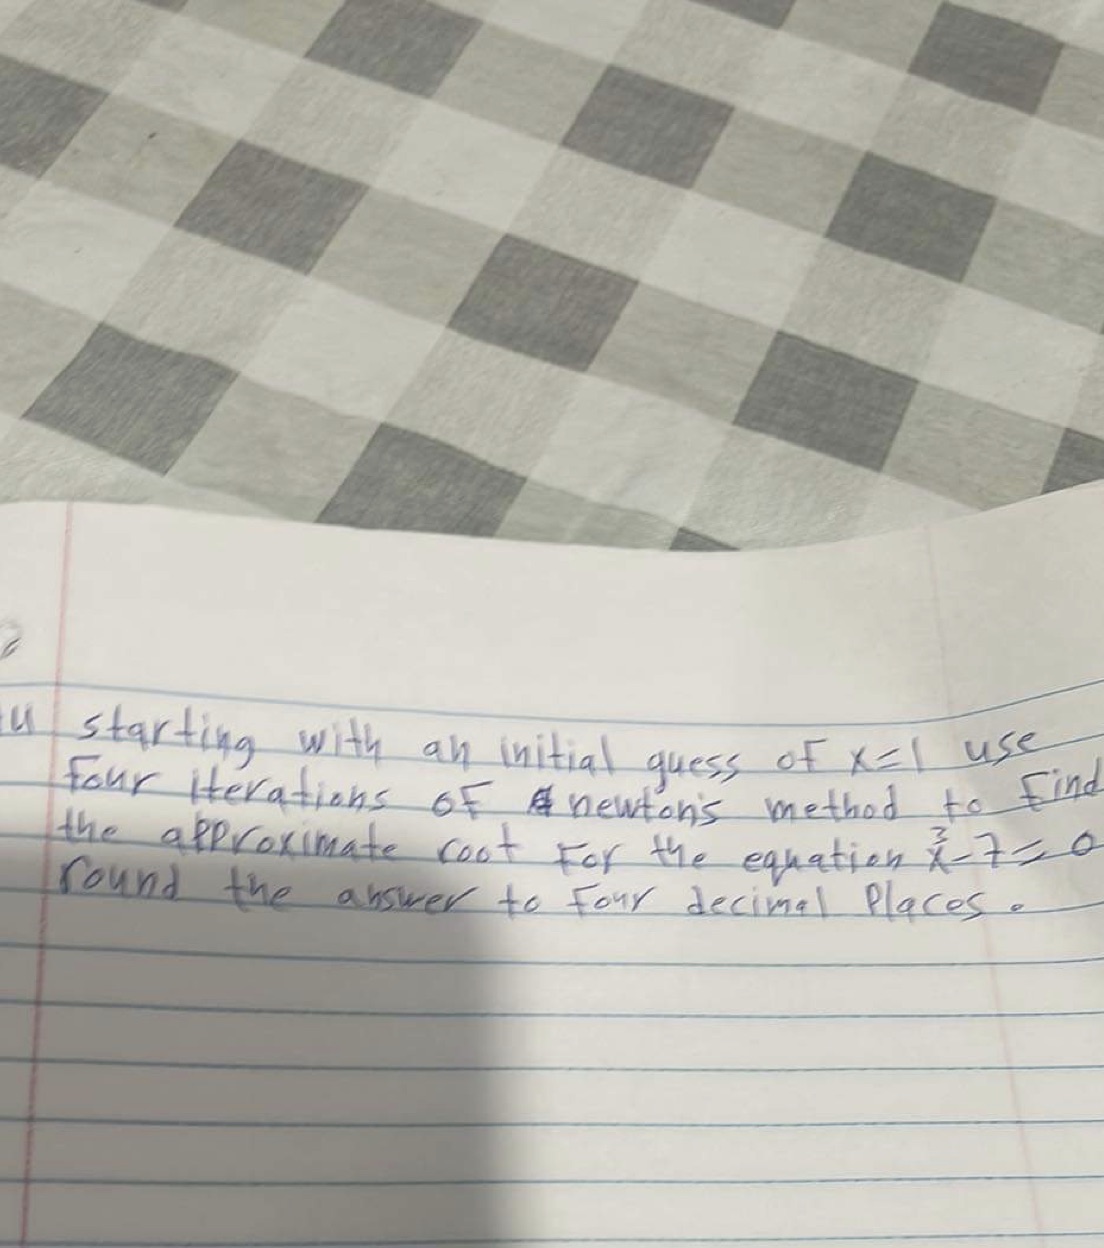 starting with an initial guess of x=1 use
four iterations of newton's method to find
the approximate root for the equation x³-7=0
round the answer to four decimal places.